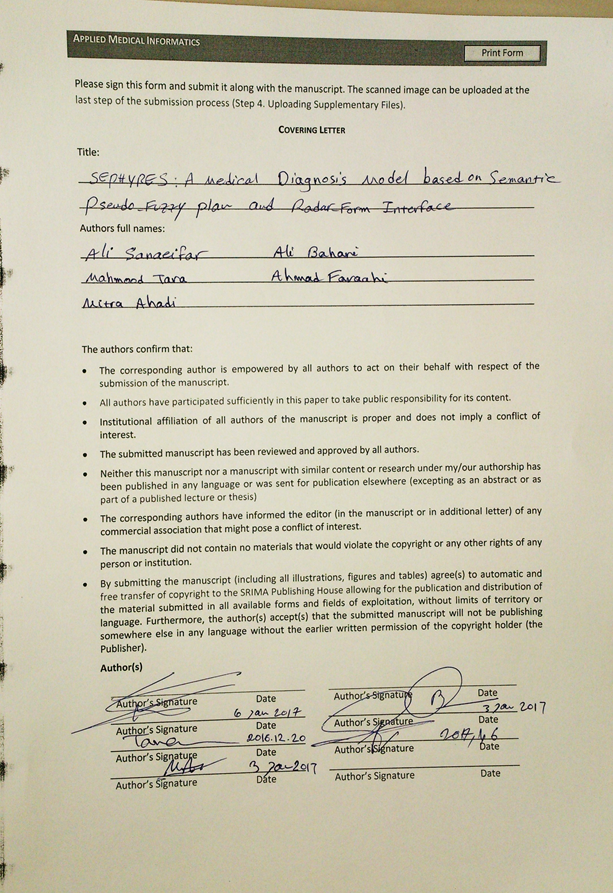 APPLIED MEDICAL INFORMATICS
Print Form
Please sign this form and submit it along with the manuscript. The scanned image can be uploaded at the
last step of the submission process (Step 4. Uploading Supplementary Files).
COVERING LETTER
Title:
SEPHYRES: A Medical Diagnosis Model based on Semantic
Pseudo-Fuzzy plan and Radar Form Interface
Authors full names:
Ali Sanaeifar Ali Bahari
Mahmood Tara Ahmad Faraahi
Mitra Ahadi
The authors confirm that:
• The corresponding author is empowered by all authors to act on their behalf with respect of the
submission of the manuscript.
• All authors have participated sufficiently in this paper to take public responsibility for its content.
• Institutional affiliation of all authors of the manuscript is proper and does not imply a conflict of
interest.
• The submitted manuscript has been reviewed and approved by all authors.
• Neither this manuscript nor a manuscript with similar content or research under my/our authorship has
been published in any language or was sent for publication elsewhere (excepting as an abstract or as
part of a published lecture or thesis)
• The corresponding authors have informed the editor (in the manuscript or in additional letter) of any
commercial association that might pose a conflict of interest.
• The manuscript did not contain no materials that would violate the copyright or any other rights of any
person or institution.
• By submitting the manuscript (including all illustrations, figures and tables) agree(s) to automatic and
free transfer of copyright to the SRIMA Publishing House allowing for the publication and distribution of
the material submitted in all available forms and fields of exploitation, without limits of territory or
language. Furthermore, the author(s) accept(s) that the submitted manuscript will not be publishing
somewhere else in any language without the earlier written permission of the copyright holder (the
Publisher).
Author(s)
Author's Signature Date Author's Signature Date
6 Jan 2017 3 Jan 2017
Author's Signature Date Author's Signature Date
Tara 2016.12.20
Author's Signature Date Author's Signature Date
3 Jan 2017
Author's Signature Date Author's Signature Date